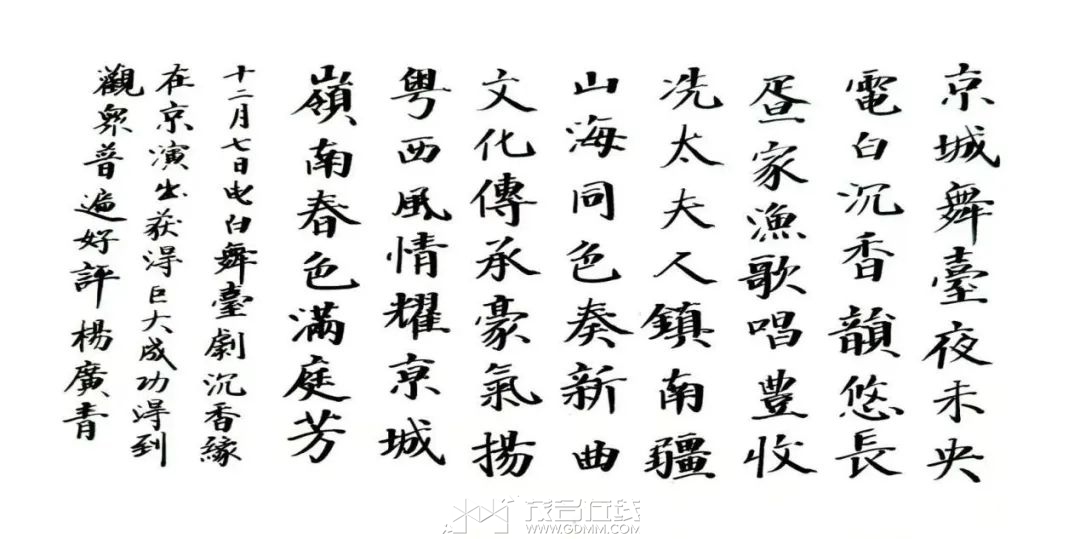 京城舞臺夜未央
電白沉香韻悠長
疍家漁歌唱豊收
冼太夫人鎮南疆
山海同色奏新曲
文化傳承豪氣揚
粤西風情耀京城
嶺南春色滿庭芳
十二月七日电白舞臺劇沉香緣
在京演出获得巨大成功得到
觀衆普遍好評 楊廣青
茂名在线
WWW.GDMM.COM